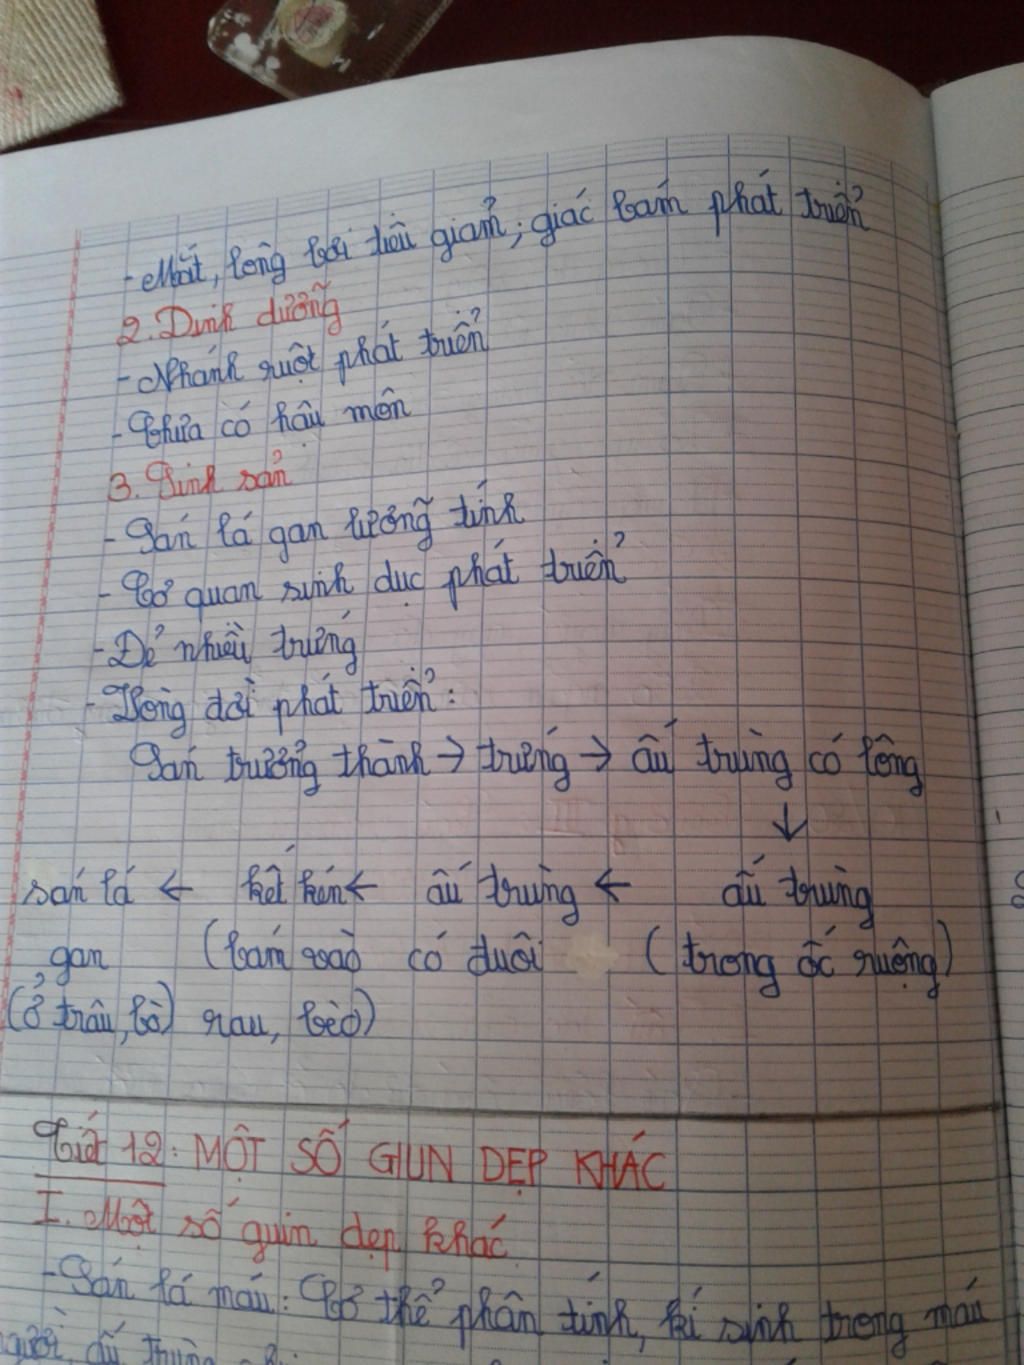 - Mắt, lông bơi tiêu giảm; giác bám phát triển
2. Dinh dưỡng
- Nhánh ruột phát triển
- Chưa có hậu môn
3. Sinh sản
- Sán lá gan lưỡng tính
- Cơ quan sinh dục phát triển
- Đẻ nhiều trứng
- Vòng đời phát triển:
Sán trưởng thành → trứng → ấu trùng có lông
↓
sán lá ← kết kén ← ấu trùng ← ấu trùng
gan (bám vào có đuôi (trong ốc ruộng)
(ở trâu, bò) rau, bèo)
Tiết 12: MỘT SỐ GIUN DẸP KHÁC
I. Một số guin dẹp khác
- Sán lá máu: Cơ thể phân tính, kí sinh trong máu
người, ấu trùng